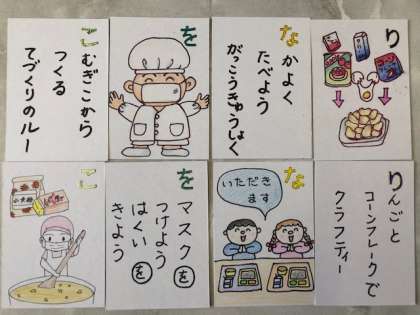 こむぎこから
つくる
てづくりのルー
を
なかよく
たべよう
がっこうきゅうしょく
り
こ
小麦粉
を
マスクを
つけよう
はくいを
きよう
な
いただき
ます
りんごと
コーンフレークで
クラフティー